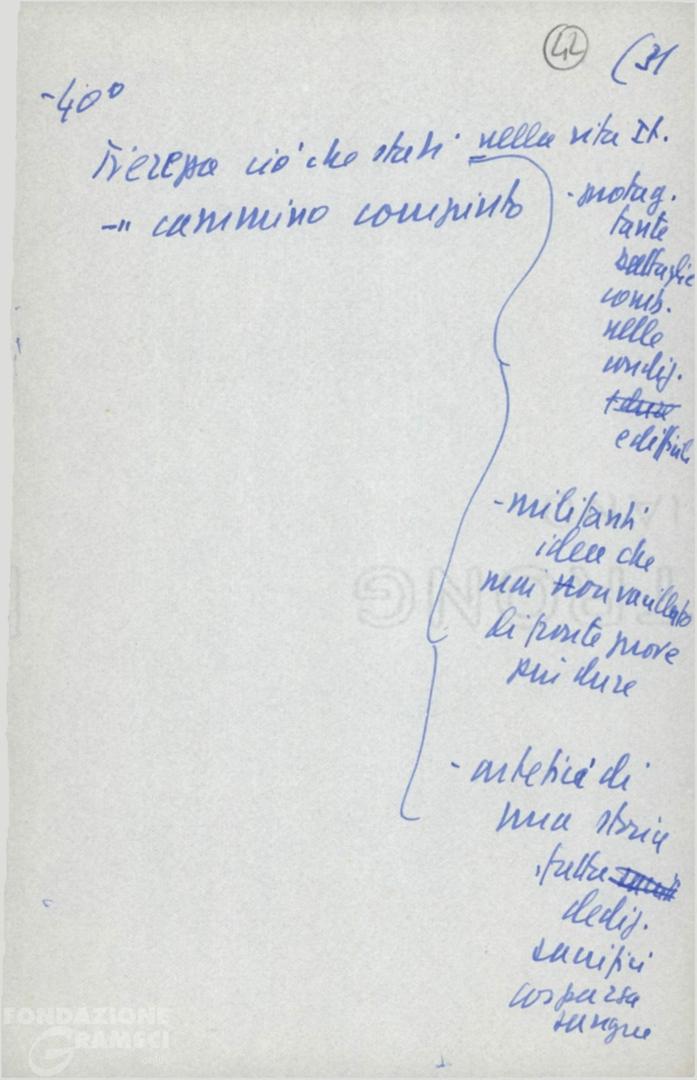 42 (31
-40°
Fierezza ciò che stati nella vita It.
-" cammino compiuto
- protag.
tante
battaglie
comb.
nelle
condiz.
+ dure
e diffic
- militanti
idea che
mai non vacillato
di fronte prove
più dure
- artefici di
una storia
fatta
dediz.
sacrifici
cosparsa
sangue
FONDAZIONE
GRAMSCI